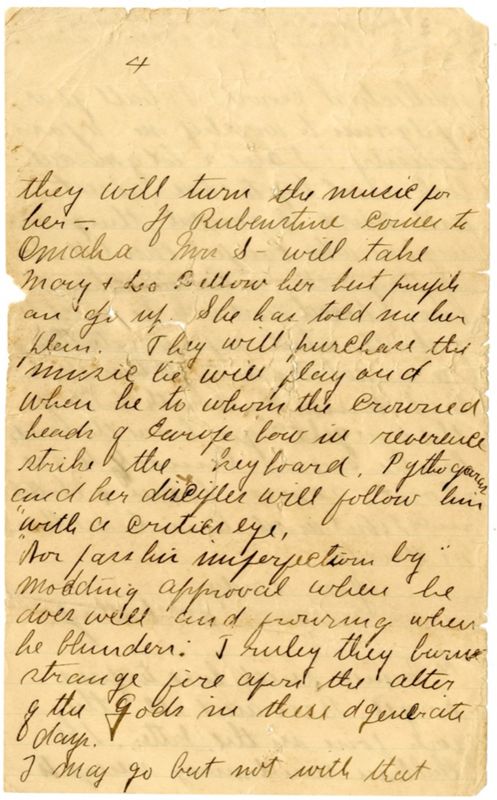 4
they will turn the music for
her—. If Rubenstine comes to
Omaha Mrs S— will take
Mary & her best pupils
an go up. She has told me her
plan. They will purchase the
music he will play and
when he to whom the crowned
heads of Europe bow in reverence
strike the keyboard, Pythagoras
and her disciples will follow him
"with a critics eye,
"Nor pass his imperfections by"
Nodding approval when he
does well and frowning when
he blunders. Truley they burn
strange fire apon the alter
of the Gods in these dgenerate
days.
I may go but not with that